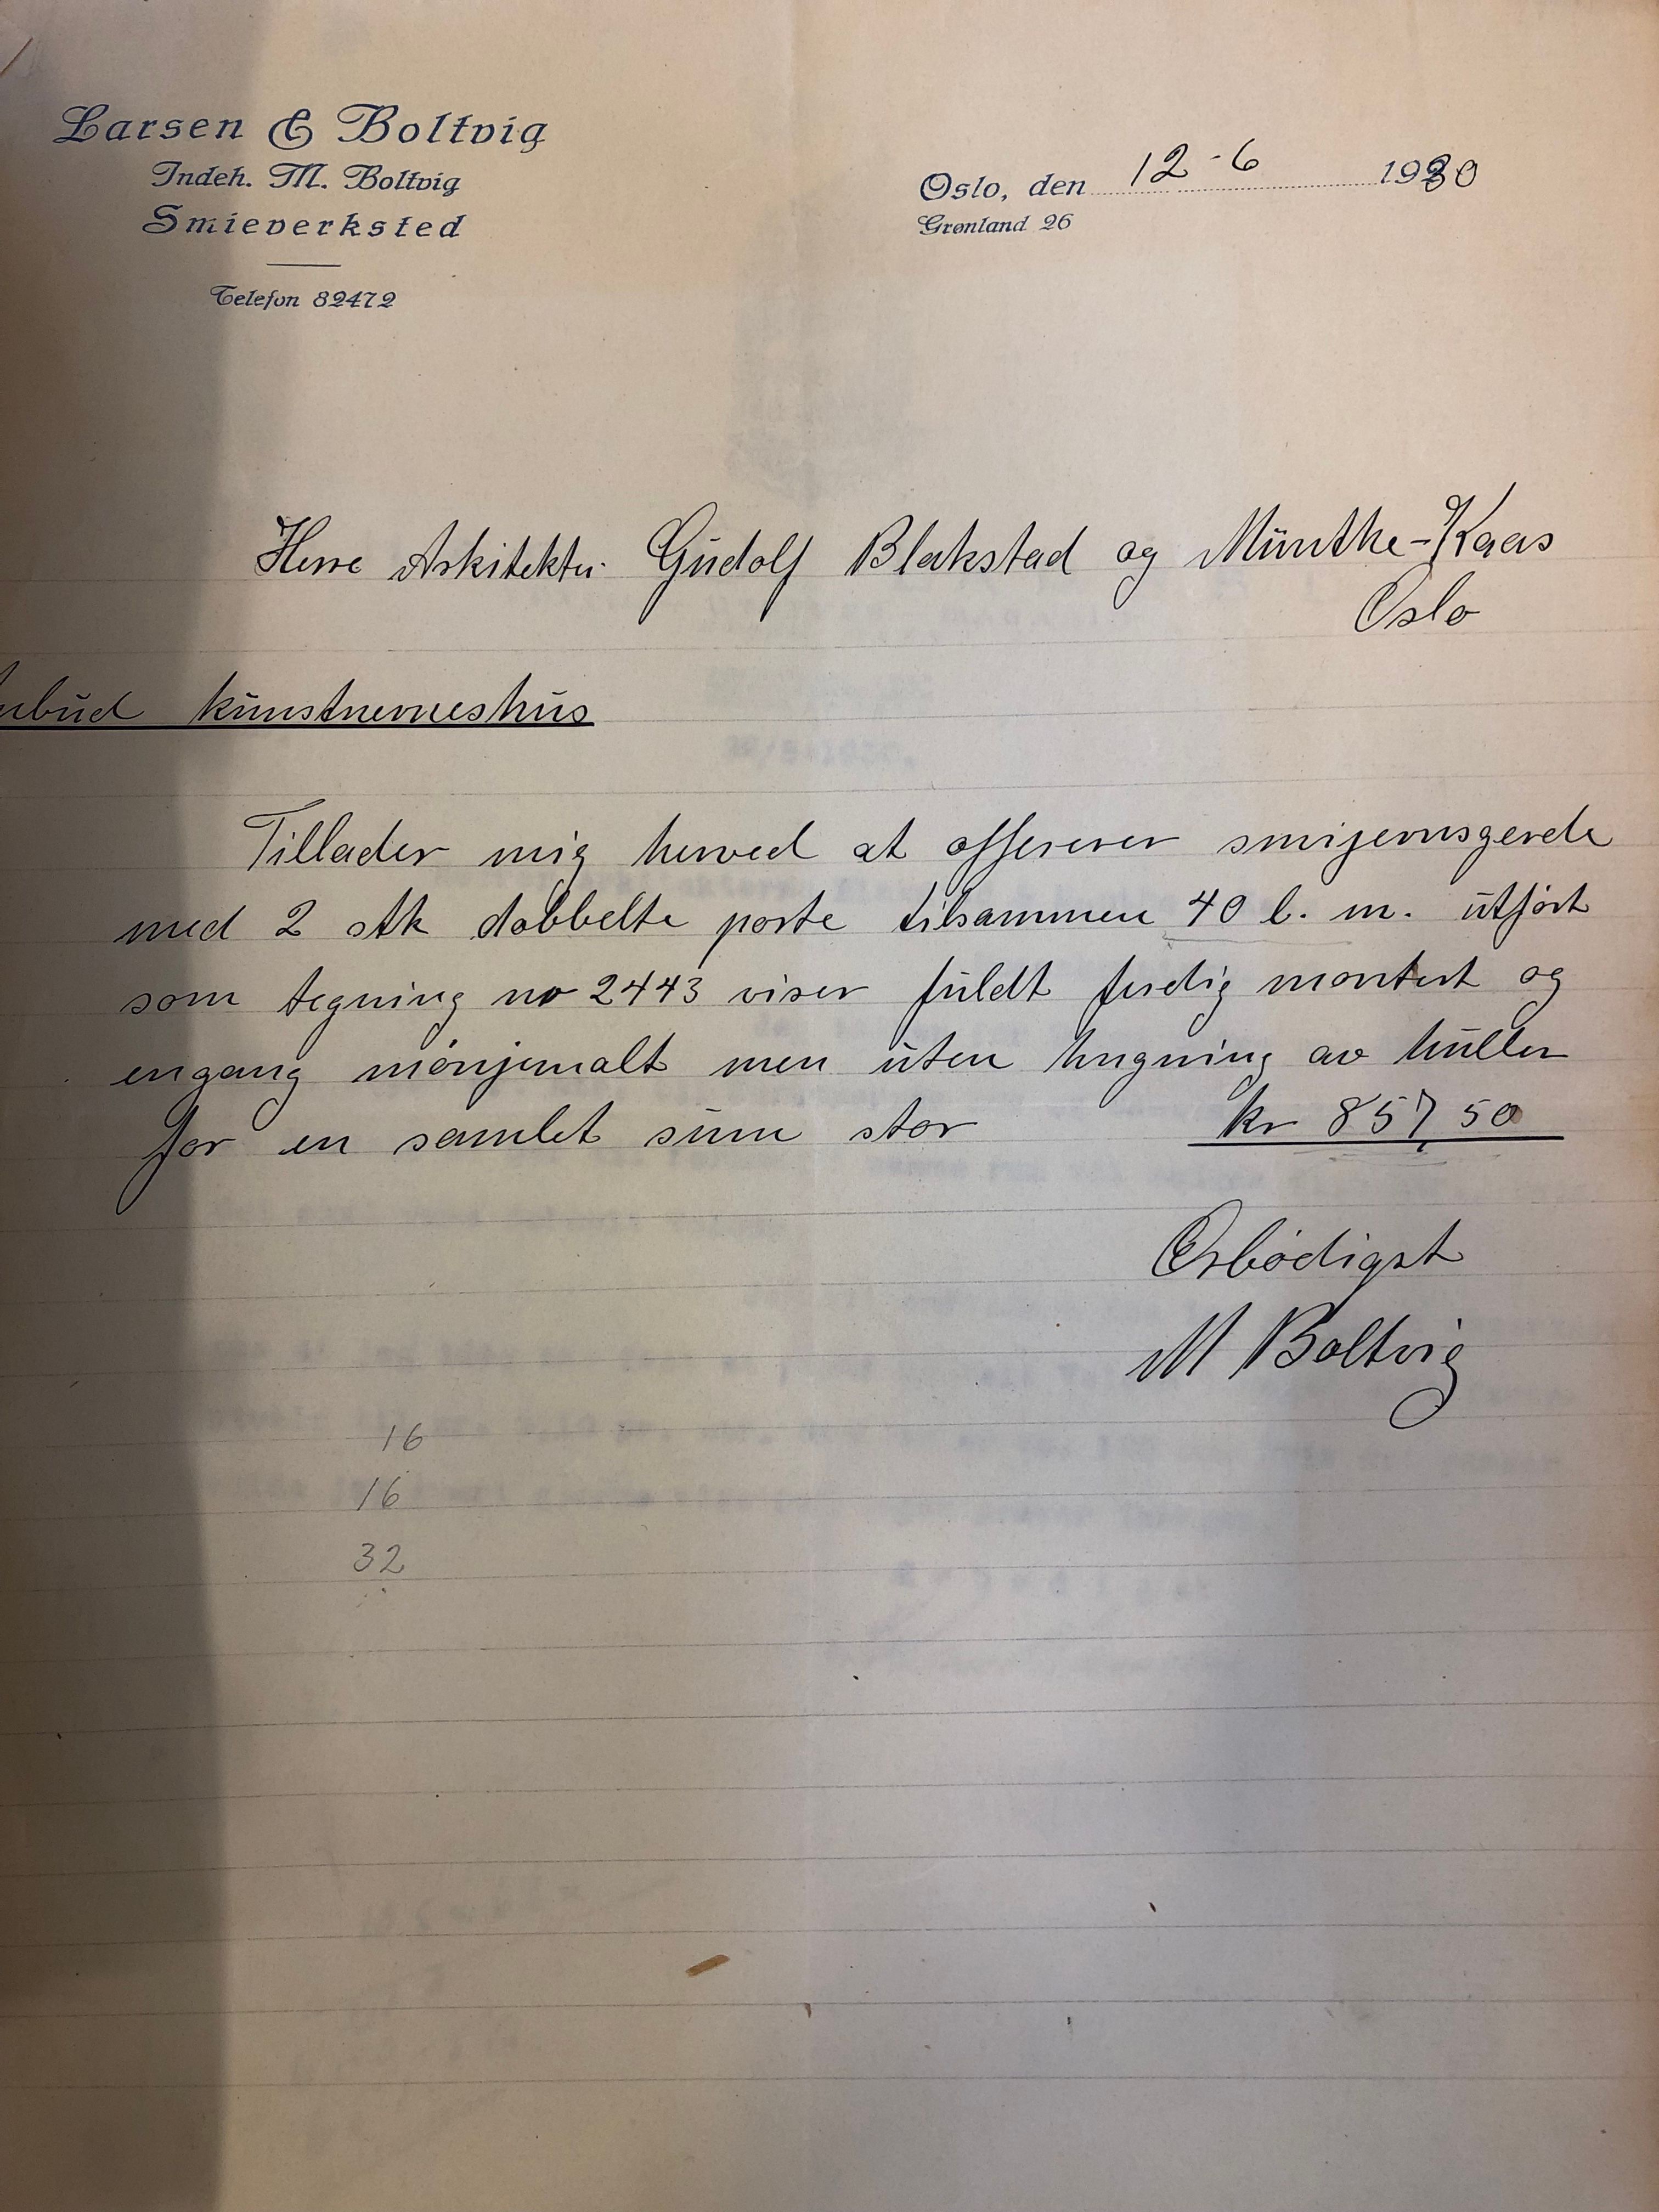 Larsen & Boltvig
Indeh. M. Boltvig
Smieverksted
Telefon 82472
Oslo, den 12-6 1930
Grønland 26
Herre Arkitekter Gudolf Blakstad og Munthe-Kaas
Oslo
nbud kunstnerneshus
Tillader mig herved at offererer smijernsgerde
med 2 stk dobbelte porte tilsammen 40 l. m. utført
som tegning no 2443 viser fuldt ferdig montert og
engang mønjemalt men uten hugning av huller
for en samlet sum stor kr 857,50
Ærbødigst
M Boltvig
16
16
32